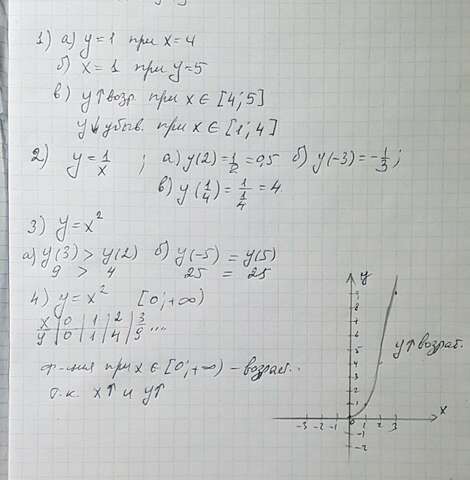 1) а) y=1 при x=4
б) x=1 при y=5
в) y↑возр. при x∈[4;5]
y↓убыв. при x∈[1;4]
2) y=1/x ; а) y(2)=1/2=0,5 б) y(-3)=-1/3;
в) y(1/4)=1/(1/4)=4
3) y=x²
а) y(3)>y(2) б) y(-5)=y(5)
9 > 4 25 = 25
4) y=x² [0;+∞)
x | 0 | 1 | 2 | 3
y | 0 | 1 | 4 | 9 ....
ф-ния при x∈[0;+∞) - возраст..
т.к. x↑ и y↑
y
9
8
7
6
5
4
3
2
1
y↑возраст.
-3 -2 -1 0 1 2 3 x
-1
-2